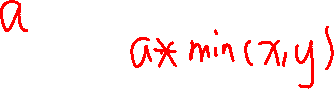 a
a* min(x,y)